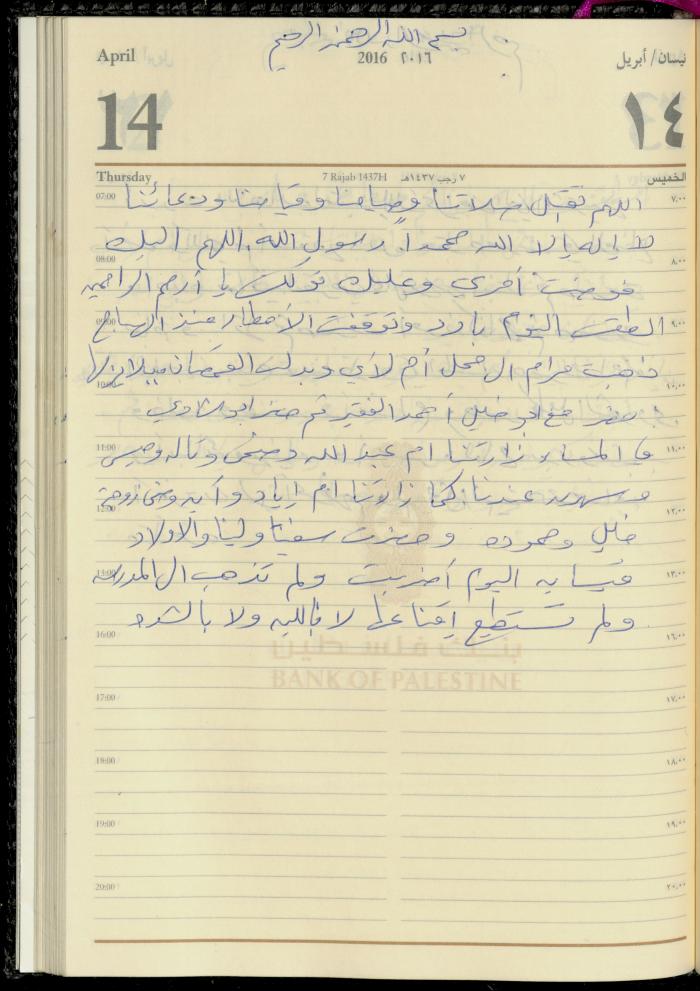 بسم الله الرحمن الرحيم
April 2016 ٢٠١٦ نيسان/ أبريل
14 ١٤
Thursday 7 Rajab 1437H ٧ رجب ١٤٣٧هـ الخميس
07:00 اللهم تقبل صلاتنا وصيامنا وقيامنا ودعائنا ٧,٠٠
لا إله إلا الله محمداً رسول الله اللهم اليك
08:00 فوضت أمري وعليك توكلت يا أرحم الراحمين ٨,٠٠
09:00 الطقس اليوم بارد وتوقفت الأمطار منذ الصباح ٩,٠٠
10:00 ذهبت مرام الى محل أم لأي وبدلت القمصان ١٠,٠٠
حضر مع ابو خليل أحمد الفقير ثم حضر ابو شادي
11:00 في المساء زارتنا ام عبد الله ١١,٠٠
12:00 عندنا كما زارتنا ام اياد وآيه زوجة ١٢,٠٠
خليل وحموده وحضرت لينا والاولاد
13:00 اليوم أضربت ولم تذهب الى المدرسه ١٣,٠٠
ولم تستطع اقناعها لا ولا بالشده
16:00 ١٦,٠٠
بنك فلسطين
BANK OF PALESTINE
17:00 ١٧,٠٠
18:00 ١٨,٠٠
19:00 ١٩,٠٠
20:00 ٢٠,٠٠